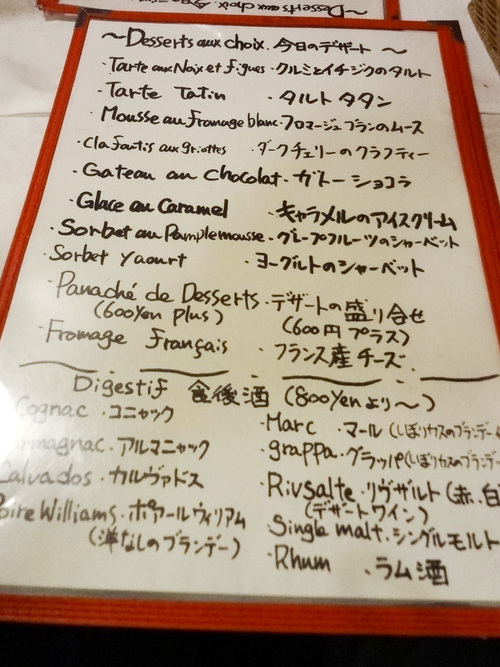 Desserts aux choix. 今日のデザート ～
～ Desserts aux choix. 今日のデザート ～
・Tarte aux Noix et figues・クルミとイチジクのタルト
・Tarte Tatin ・タルトタタン
・Mousse au fromage blanc・フロマージュブランのムース
・Clafoutis aux griottes ・ダークチェリーのクラフティー
・Gateau au Chocolat・ガトーショコラ
・Glace au Caramel ・キャラメルのアイスクリーム
・Sorbet au Pamplemousse・グレープフルーツのシャーベット
・Sorbet Yaourt ・ヨーグルトのシャーベット
・Panaché de Desserts・デザートの盛り合せ
(600yen plus) (600円プラス)
・Fromage Français ・フランス産チーズ.
Digestif 食後酒 (800yenより～)
Cognac・コニャック
rmagnac・アルマニャック
Calvados・カルヴァドス
Poire Williams・ポアールウィリアム
(洋なしのブランデー)
・Marc ・マール(しぼりカスのブランデー
・grappa・グラッパ(しぼりカスのブランデー
・Rivsalte・リヴザルト(赤・白
(デザートワイン)
・Single malt・シングルモルト
・Rhum ・ラム酒